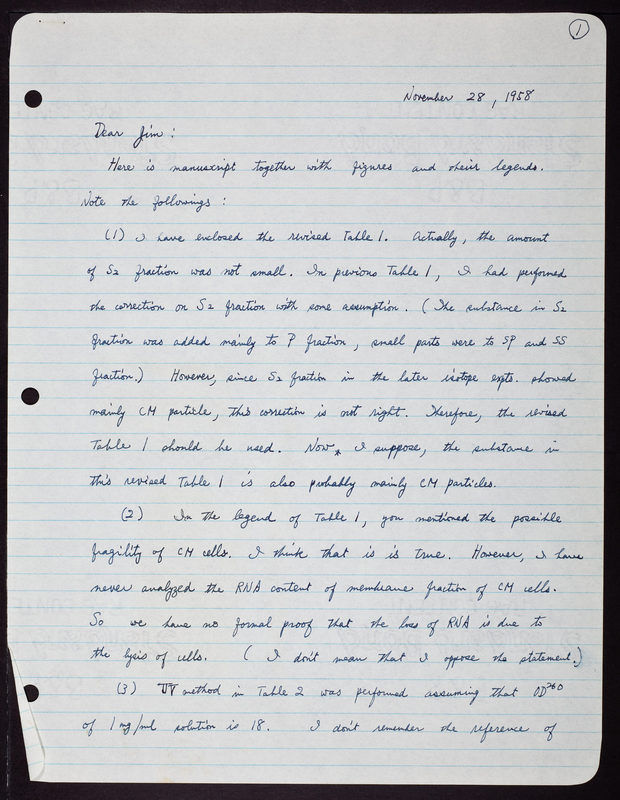 1
November 28, 1958
Dear Jim:
Here is manuskript together with figures and their legends.
Note the followings:
(1) I have enclosed the revised Table 1. Actually, the amount
of S2 fraction was not small. In previous Table 1, I had performed
the correction on S2 fraction with some assumption. (The substance in S2
fraction was added mainly to P fraction, small parts were to SP and SS
fraction.) However, since S2 fraction in the later isotope expts. showed
mainly CM particle, this correction is not right. Therefore, the revised
Table 1 should be used. Now, I suppose, the substance in
this revised Table 1 is also probably mainly CM particles.
(2) In the legend of Table 1, you mentioned the possible
fragility of CM cells. I think that is is true. However, I have
never analyzed the RNA content of membrane fraction of CM cells.
So we have no formal proof that the loss of RNA is due to
the lysis of cells. (I don't mean that I oppose the statement.)
(3) UV method in Table 2 was performed assuming that OD260
of 1 mg/ml solution is 18. I don't remember the reference of